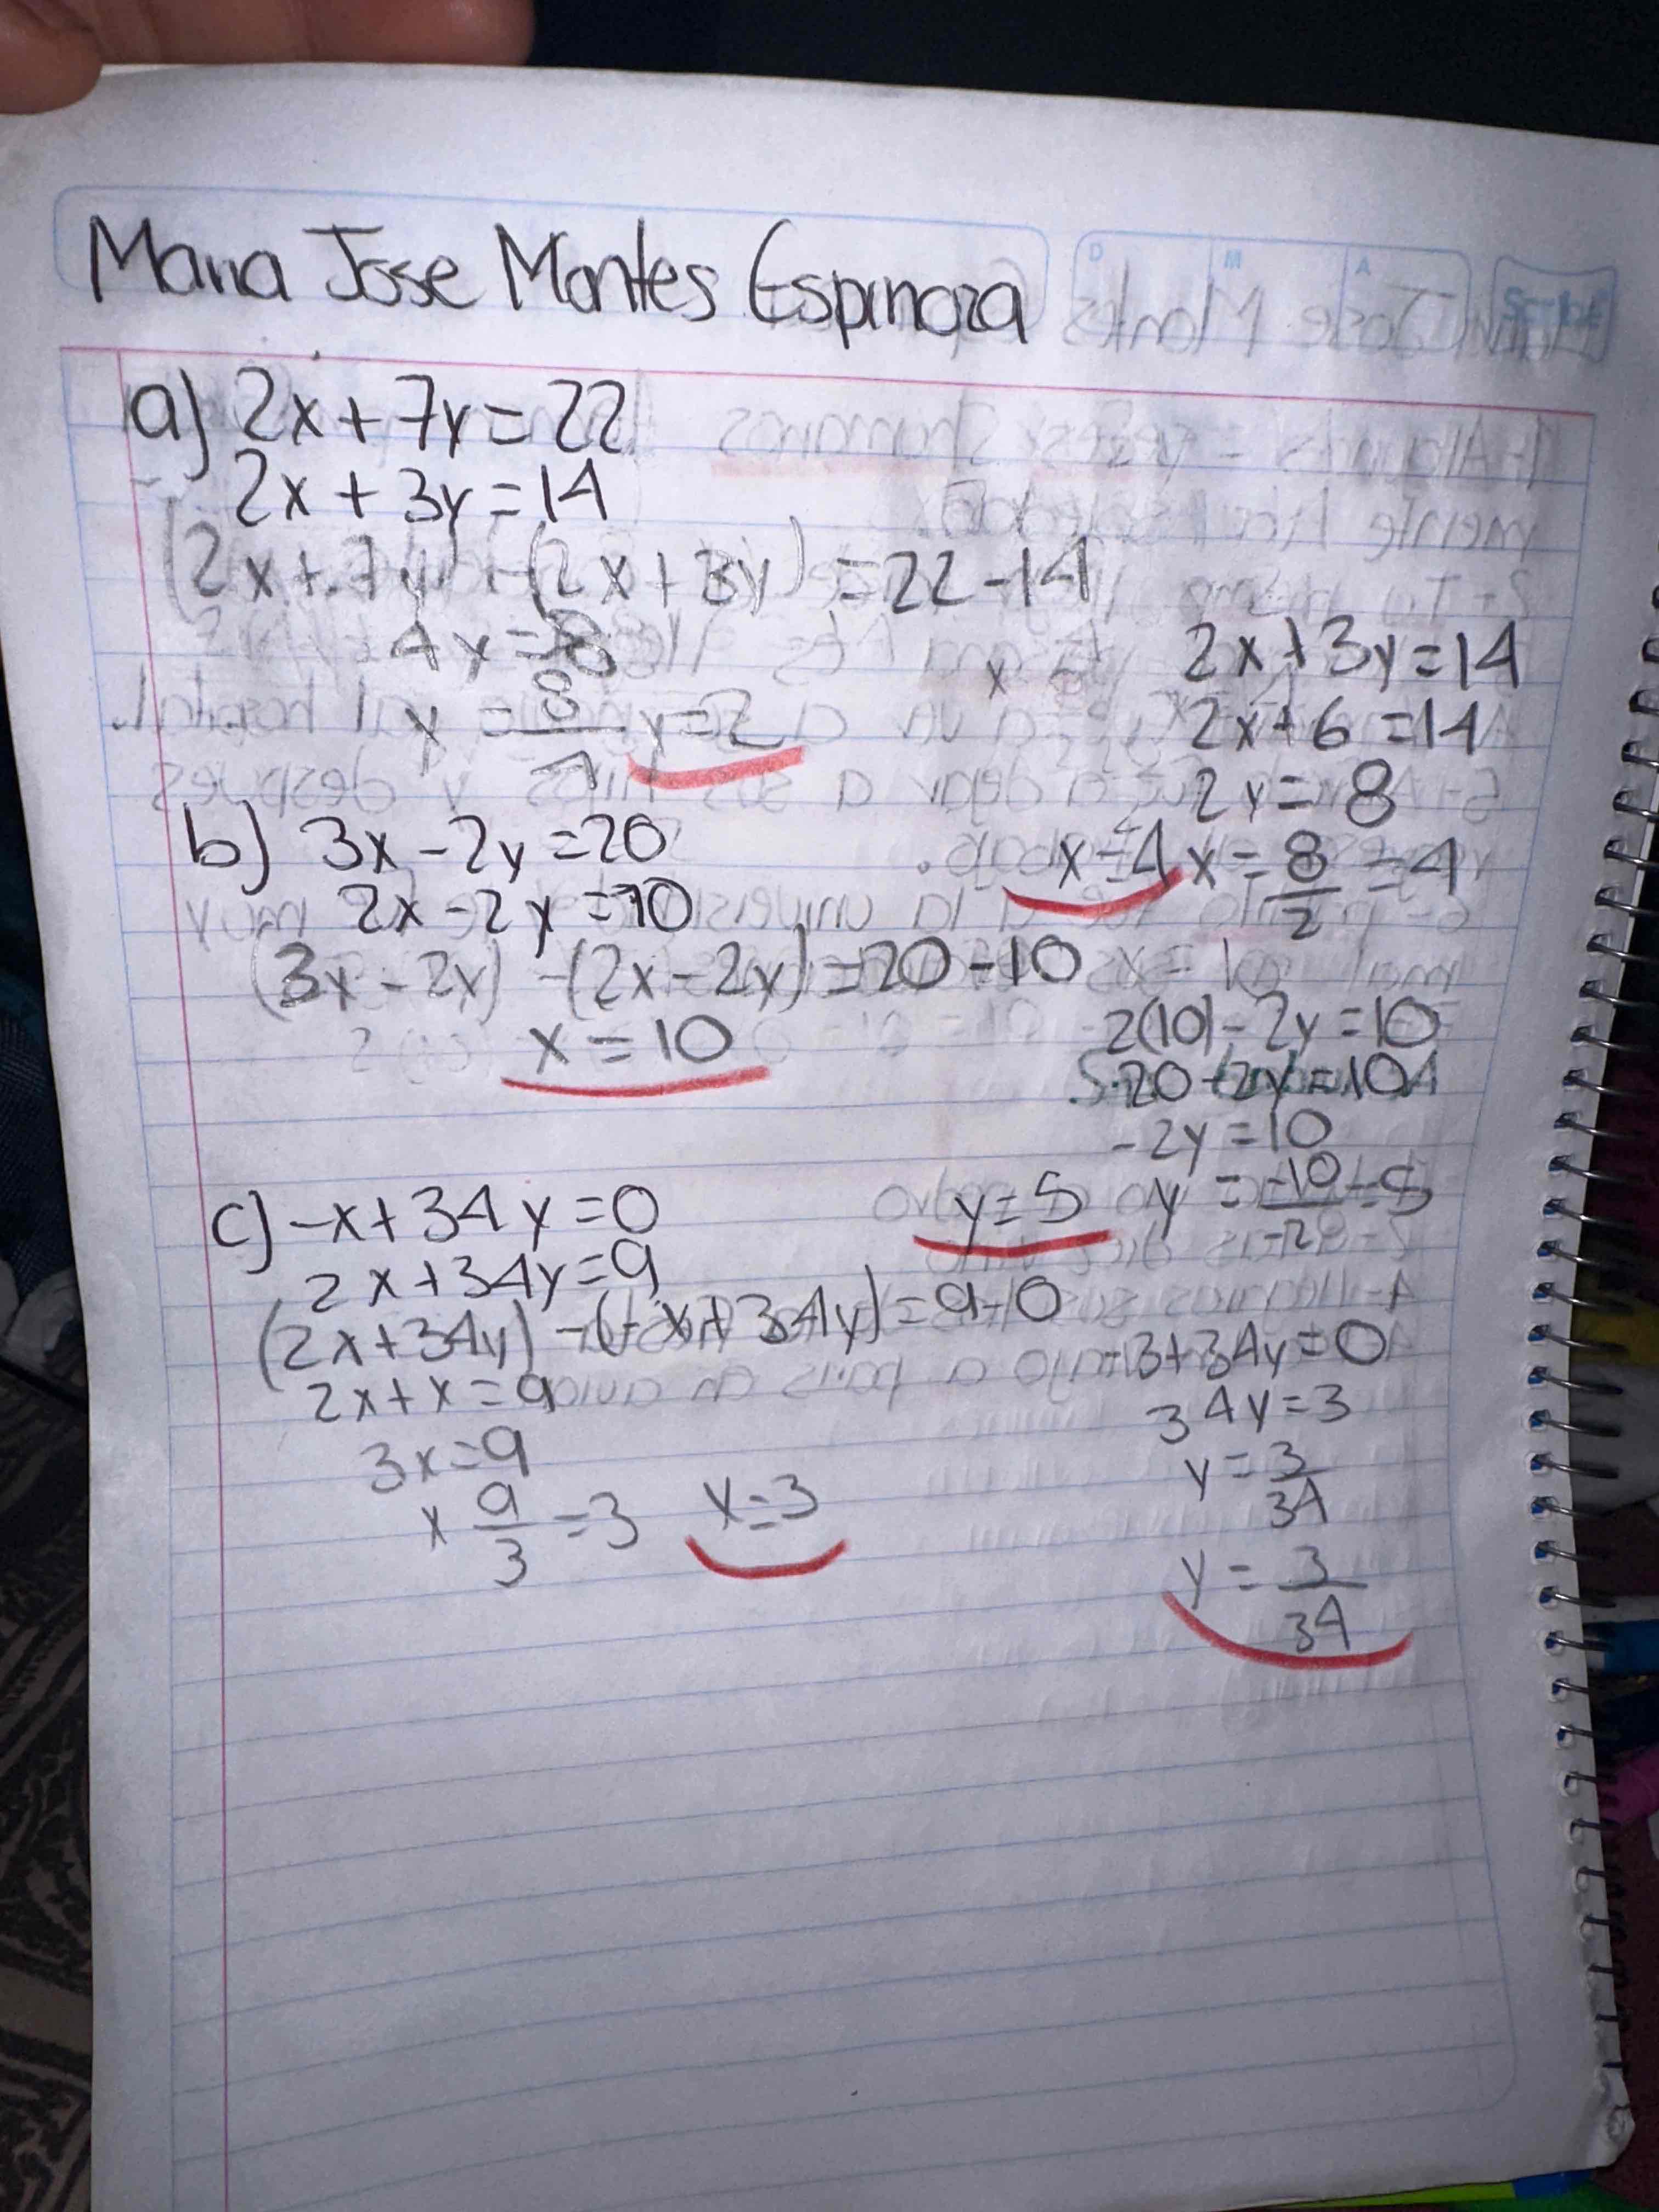 Maria Jose Montes Espinoza
D M A
Scribe
a) 2x+7y=22
2x+3y=14
(2x+7y)-(2x+3y)=22-14
4y=8
y=8/4 y=2
2x+3y=14
2x+6=14
2y=8
x=4 x=8/2=4
b) 3x-2y=20
2x-2y=10
(3x-2x)-(2x-2y)=20-10
x=10
2(10)-2y=10
20-2y=10
-2y=10
y=5 y=-10/-2=5
c) -x+34y=0
2x+34y=9
(2x+34y)-(-x+34y)=9-0
2x+x=9
3x=9
x 9/3=3 x=3
-3+34y=0
34y=3
y=3/34
y=3/34